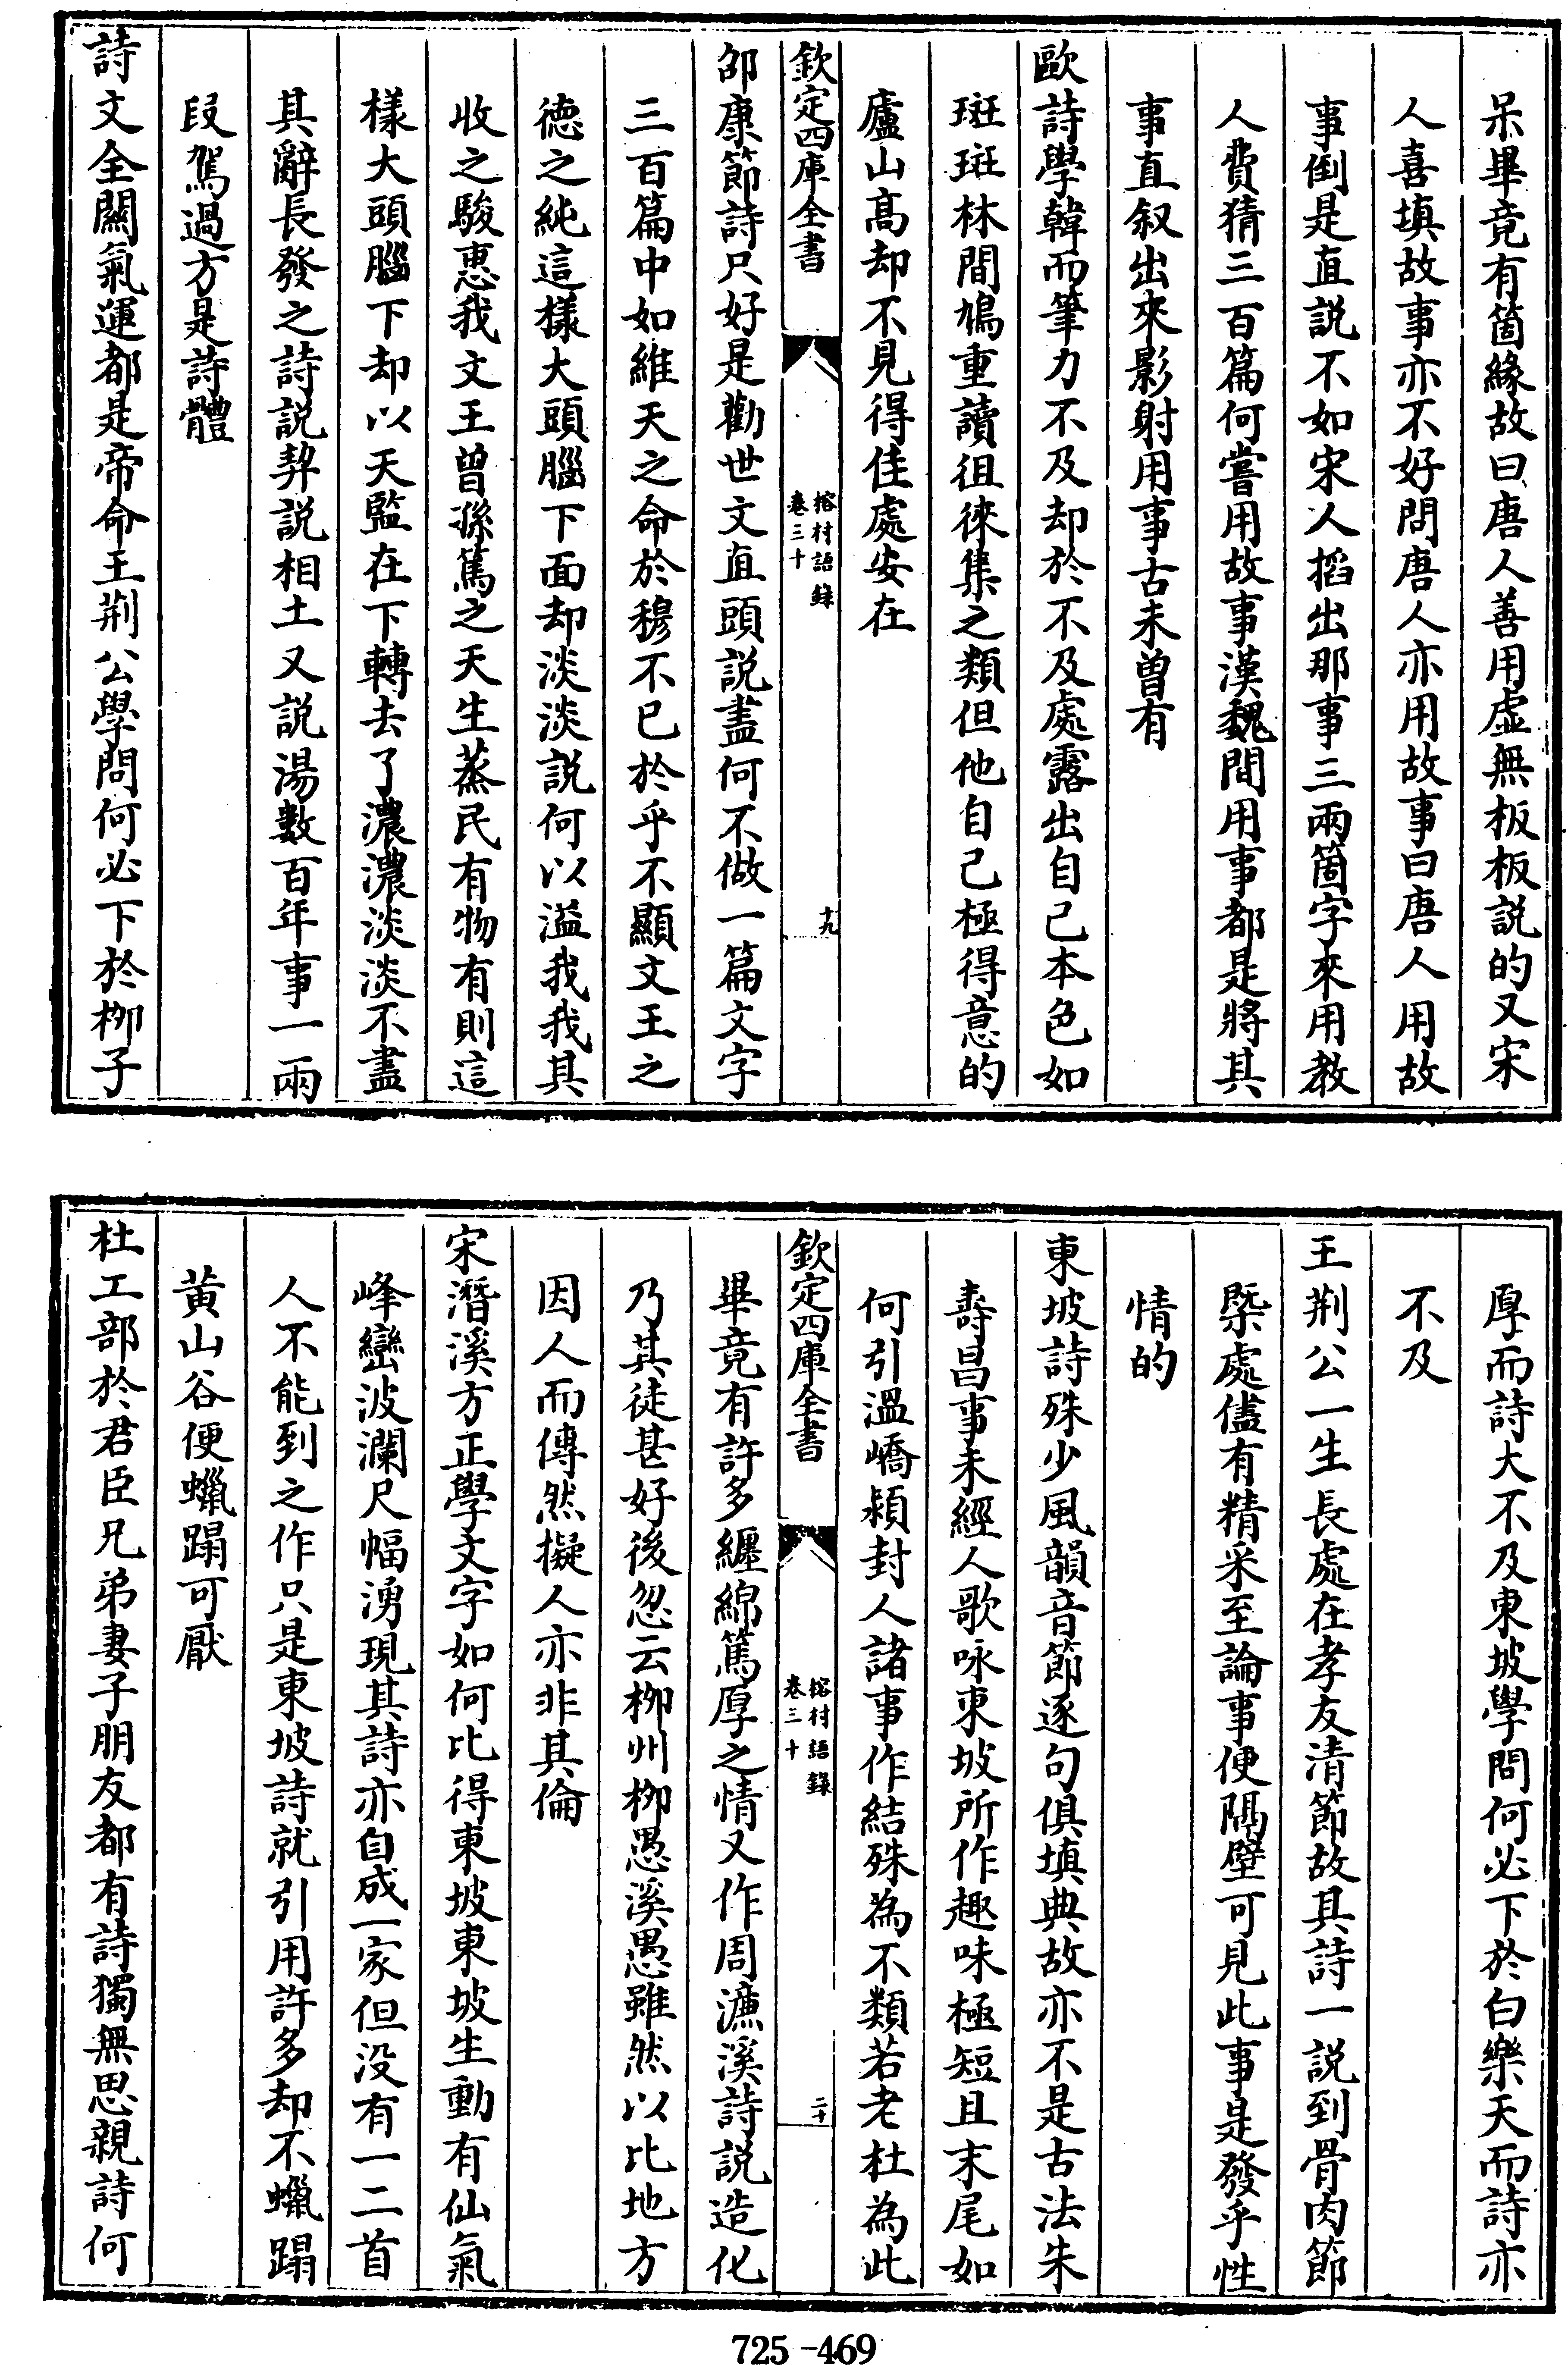 呆畢竟有箇緣故曰唐人善用虛無板板説的又宋
人喜填故事亦不好問唐人亦用故事曰唐人用故
事倒是直説不如宋人搯出那事三兩箇字來用教
人費猜三百篇何嘗用故事漢魏間用事都是將其
事直叙出來影射用事古未曽有
歐詩學韓而筆力不及却於不及處露出自己本色如
斑斑林間鳩重讀徂徠集之類但他自己極得意的
廬山髙却不見得佳處安在
欽定四庫全書
榕村語錄
卷三十
十九
邵康節詩只好是勸世文直頭説盡何不做一篇文字
三百篇中如維天之命於穆不已於乎不顯文王之
徳之純這様大頭腦下面却淡淡説何以溢我我其
收之駿惠我文王曽孫篤之天生蒸民有物有則這
様大頭腦下却以天監在下轉去了濃濃淡淡不盡
其辭長發之詩説契説相土又説湯數百年事一兩
段駕過方是詩體
詩文全關氣運都是帝命王荆公學問何必下於栁子
厚而詩大不及東坡學問何必下於白樂天而詩亦
不及
王荆公一生長處在孝友清節故其詩一説到骨肉節
槩處儘有精采至論事便隔壁可見此事是發乎性
情的
東坡詩殊少風韻音節逐句俱填典故亦不是古法朱
壽昌事未經人歌咏東坡所作趣味極短且末尾如
何引溫嶠潁封人諸事作結殊為不類若老杜為此
欽定四庫全書
榕村語錄
卷三十
二十
畢竟有許多纒綿篤厚之情又作周濂溪詩説造化
乃其徒甚好後忽云栁州栁愚溪愚雖然以比地方
因人而傳然擬人亦非其倫
宋潛溪方正學文字如何比得東坡東坡生動有仙氣
峰巒波瀾尺幅湧現其詩亦自成一家但没有一二首
人不能到之作只是東坡詩就引用許多却不蠟蹋
黄山谷便蠟蹋可厭
杜工部於君臣兄弟妻子朋友都有詩獨無思親詩何
725-469